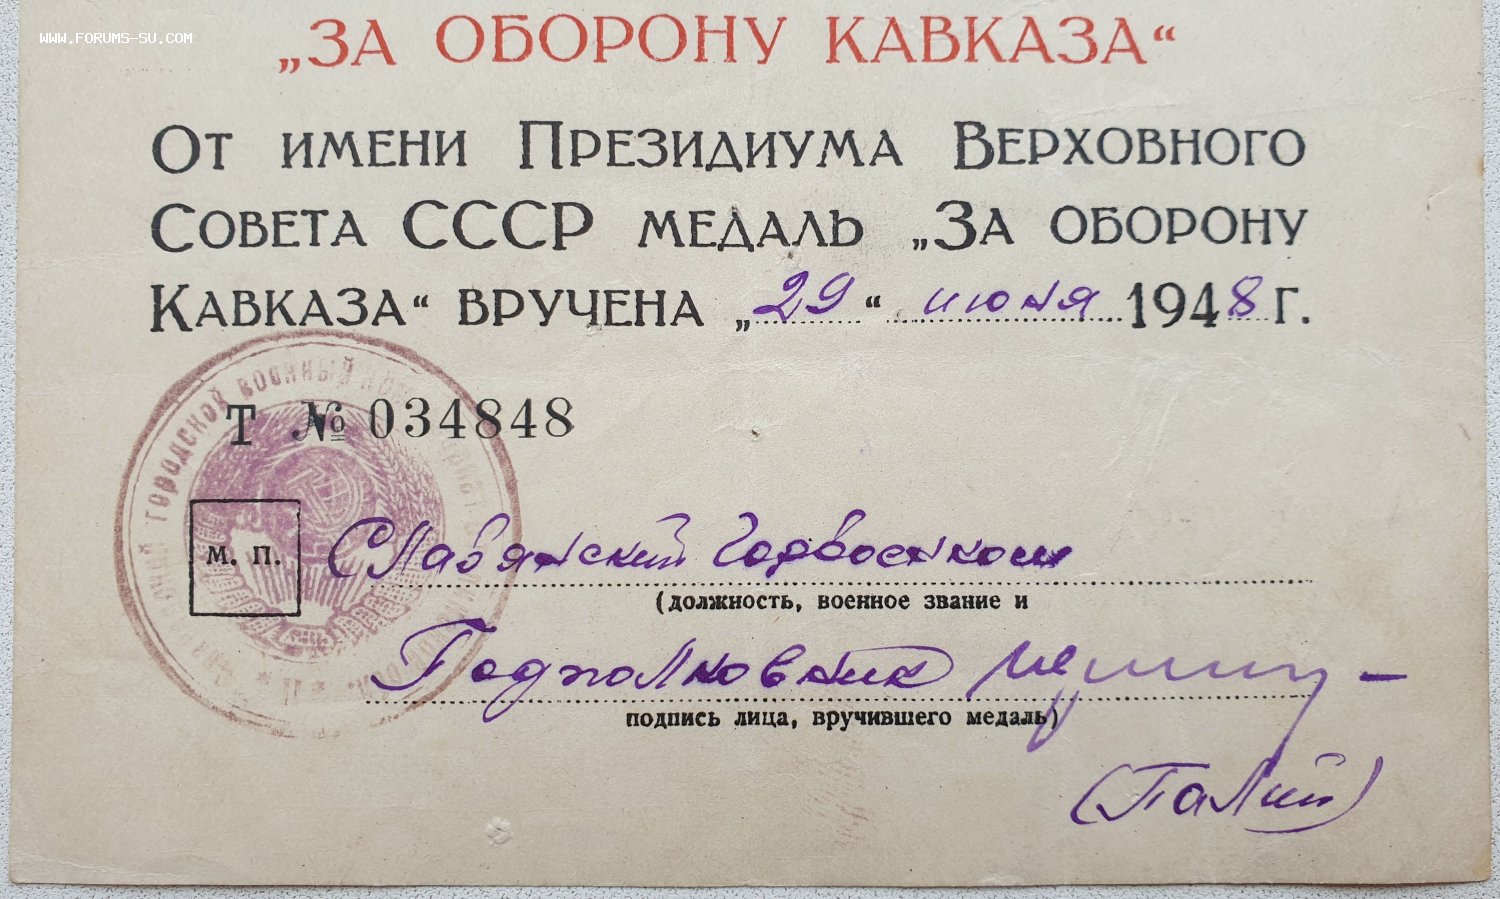 WWW.FORUMS-SU.COM
„ЗА ОБОРОНУ КАВКАЗА“
От имени Президиума Верховного
Совета СССР медаль „За оборону
Кавказа“ вручена „29“ июня 1948 г.
Т № 034848
городской военный
м. п.
Славянский Горвоенком
(должность, военное звание и
Подполковник
подпись лица, вручившего медаль)
(Палий)